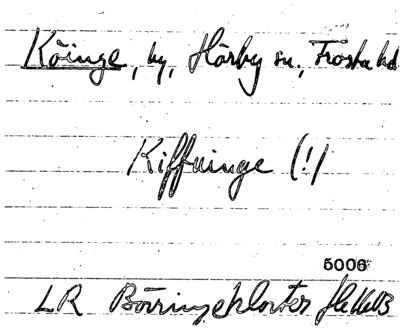 Köinge, by, Hörby sn., Frosta hd
Kiffninge (!)
5006
LR Börringekloster